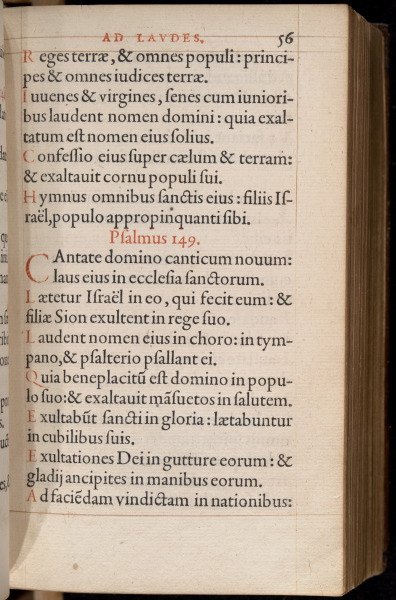 AD LAVDES. 56
Reges terræ, & omnes populi: princi-
pes & omnes iudices terræ.
Iuuenes & virgines, ſenes cum iuniori-
bus laudent nomen domini: quia exal-
tatum eſt nomen eius ſolius.
Confeſſio eius ſuper cælum & terram:
& exaltauit cornu populi ſui.
Hymnus omnibus ſanctis eius: filiis Iſ-
raël, populo appropinquanti ſibi.
Pſalmus 149.
CAntate domino canticum nouum:
laus eius in eccleſia ſanctorum.
Lætetur Iſraël in eo, qui fecit eum: &
filiæ Sion exultent in rege ſuo.
Laudent nomen eius in choro: in tym-
pano, & pſalterio pſallant ei.
Quia beneplacitū eſt domino in popu-
lo ſuo: & exaltauit māſuetos in ſalutem.
Exultabūt ſancti in gloria: lætabuntur
in cubilibus ſuis.
Exultationes Dei in gutture eorum: &
gladij ancipites in manibus eorum.
Ad faciēdam vindictam in nationibus: